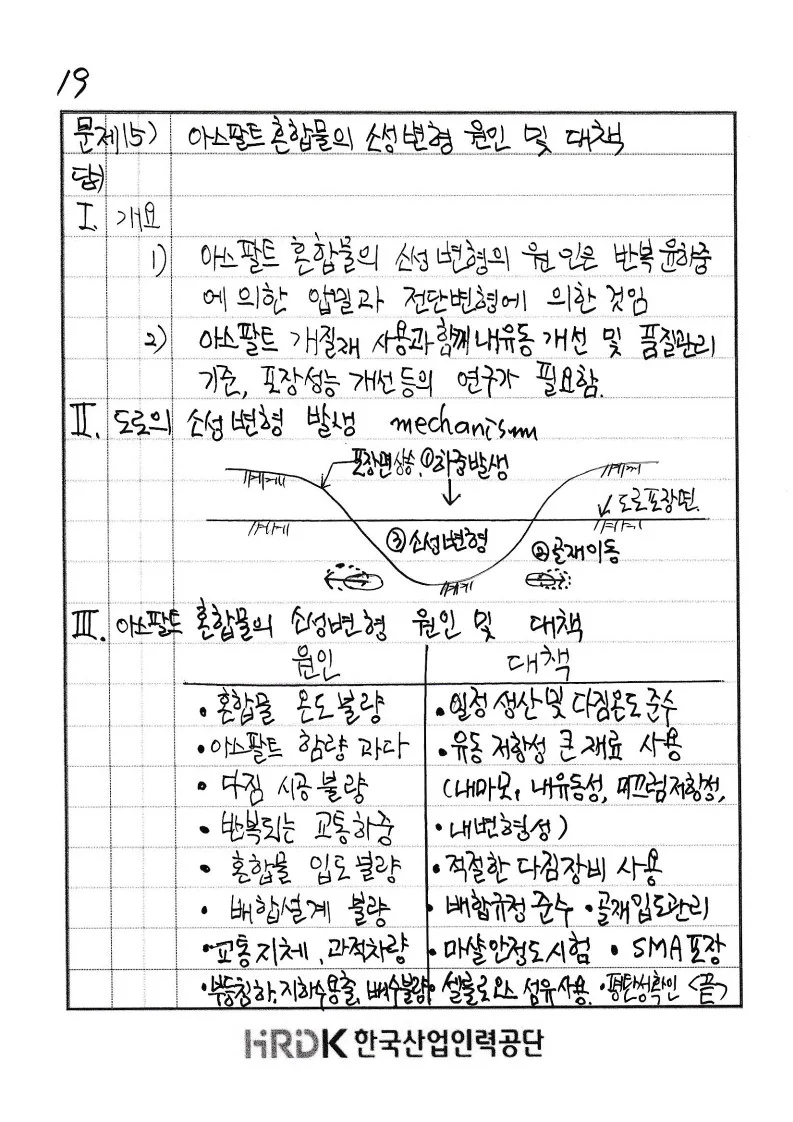 19
문제15) 아스팔트 혼합물의 소성변형 원인 및 대책
답)
I. 개요
1) 아스팔트 혼합물의 소성변형의 원인은 반복윤하중
에 의한 압밀과 전단변형에 의한 것임
2) 아스팔트 개질재 사용과 함께 내유동 개선 및 품질관리
기준, 포장성능 개선등의 연구가 필요함.
II. 도로의 소성변형 발생 mechanism
포장면상승, ①하중발생
도로포장면.
③소성변형
②골재이동
III. 아스팔트 혼합물의 소성변형 원인 및 대책
원인 대책
• 혼합물 온도불량 • 일정 생산 및 다짐온도 준수
• 아스팔트 함량 과다 • 유동 저항성 큰 재료 사용
• 다짐 시공 불량 (내마모, 내유동성, 미끄럼저항성,
• 반복되는 교통하중 • 내변형성)
• 혼합물 입도불량 • 적절한 다짐장비 사용
• 배합설계 불량 • 배합규정 준수 • 골재입도관리
• 교통지체, 과적차량 • 마샬안정도시험 • SMA포장
• 부등침하, 지하수용출, 배수불량 • 셀룰로오스 섬유사용. • 평탄성확인 <끝>
HRDK 한국산업인력공단